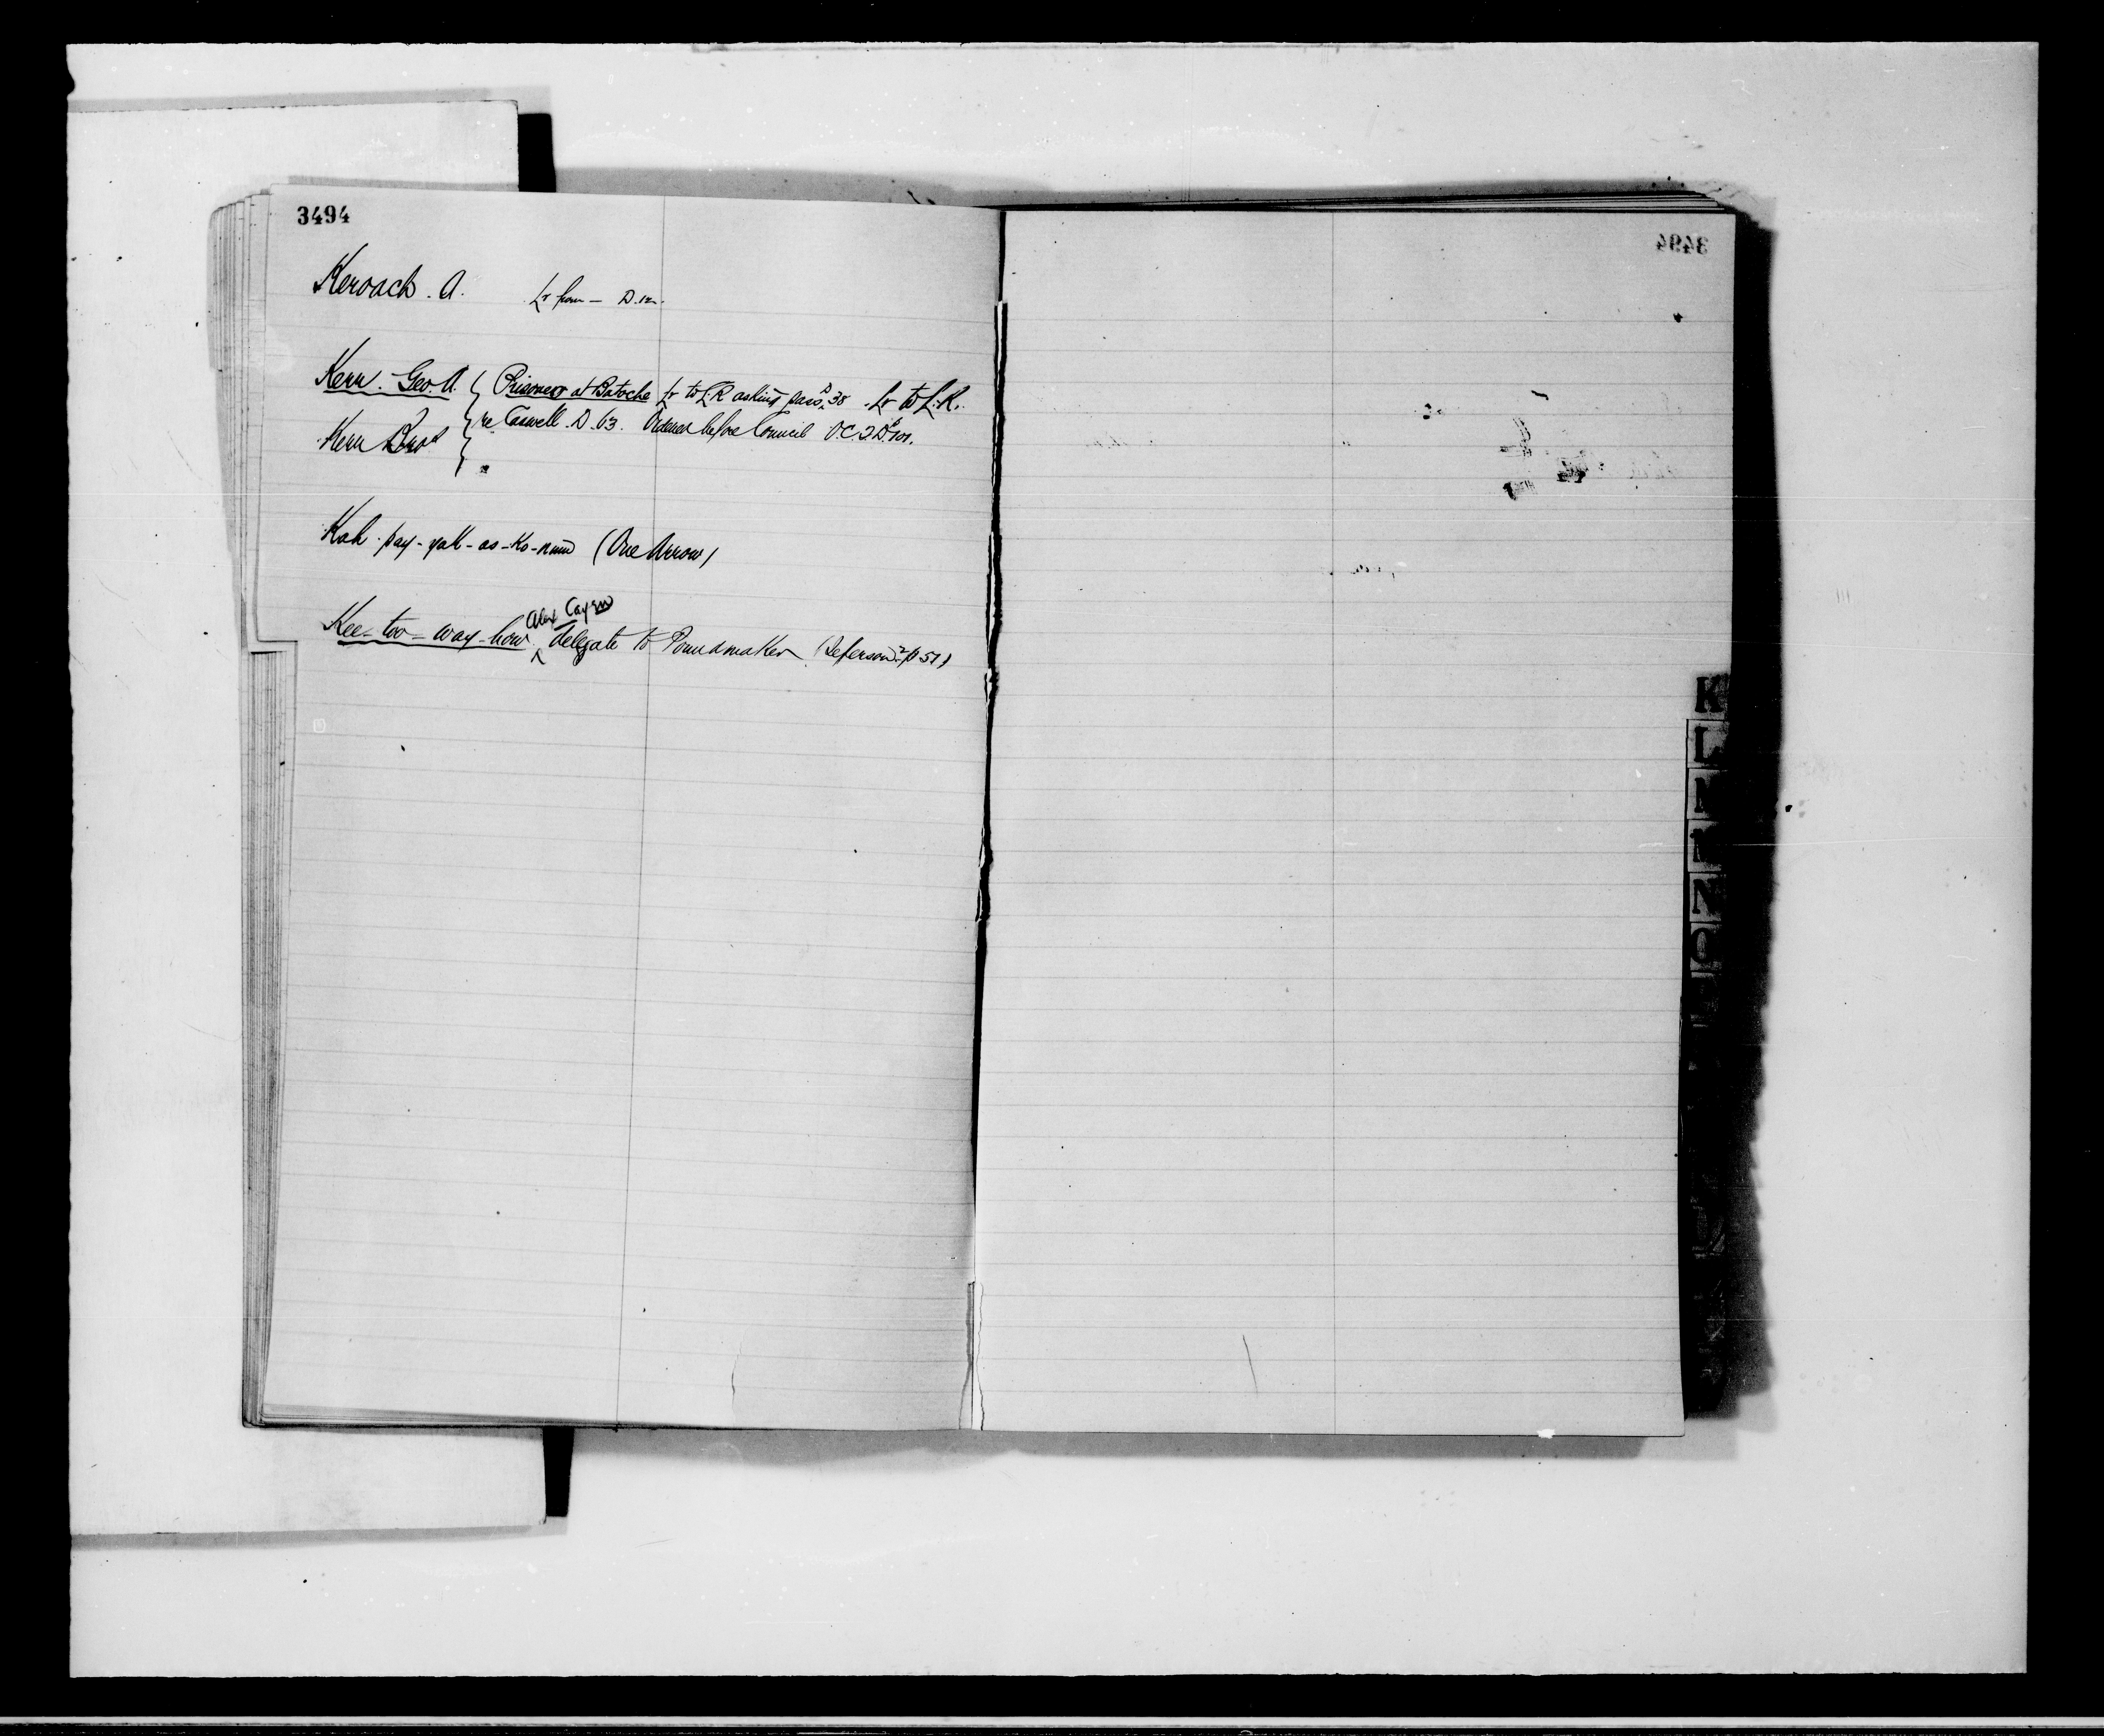 3494
Keroack. A. Lr from — D.12.
Kerr. Geo. A. { Prisoners at Batoche Lr to L.R asking pass D. 38. Lr to L.R.
Kerr Bros { re Caswell. D. 63. Ordered before Council O.C.2 D. 101.
Kah-pay-yak-as-ko-num (One Arrow)
Alex Cayen
Kee-too-way-how ^ delegate to Poundmaker (Jefferson 2/p 51)
K
L
N
O